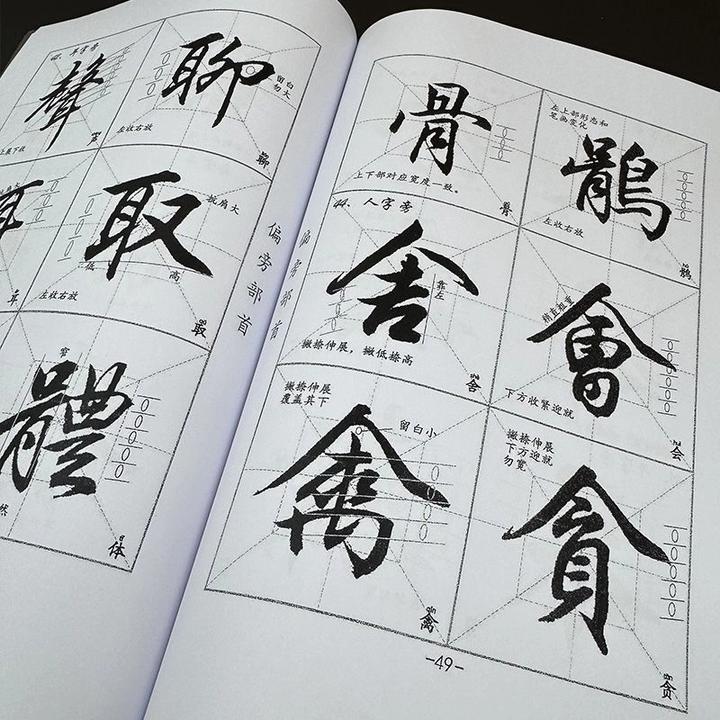 聲
声
聊
留白
勿大
左收右放
聊
取
左收右放
低
高
取
窄
體
体
偏旁部首
骨
上下部对应宽度一致。
骨
左上部形态和
笔画变化
鶻
左收右放
鹘
44. 人字旁
舍
靠左
撇捺伸展，撇低捺高
舍
會
稍直粗重
下方收紧迎就
会
撇捺伸展
覆盖其下
留白小
禽
qín
禽
撇捺伸展
下方迎就
勿宽
貪
贪
-49-